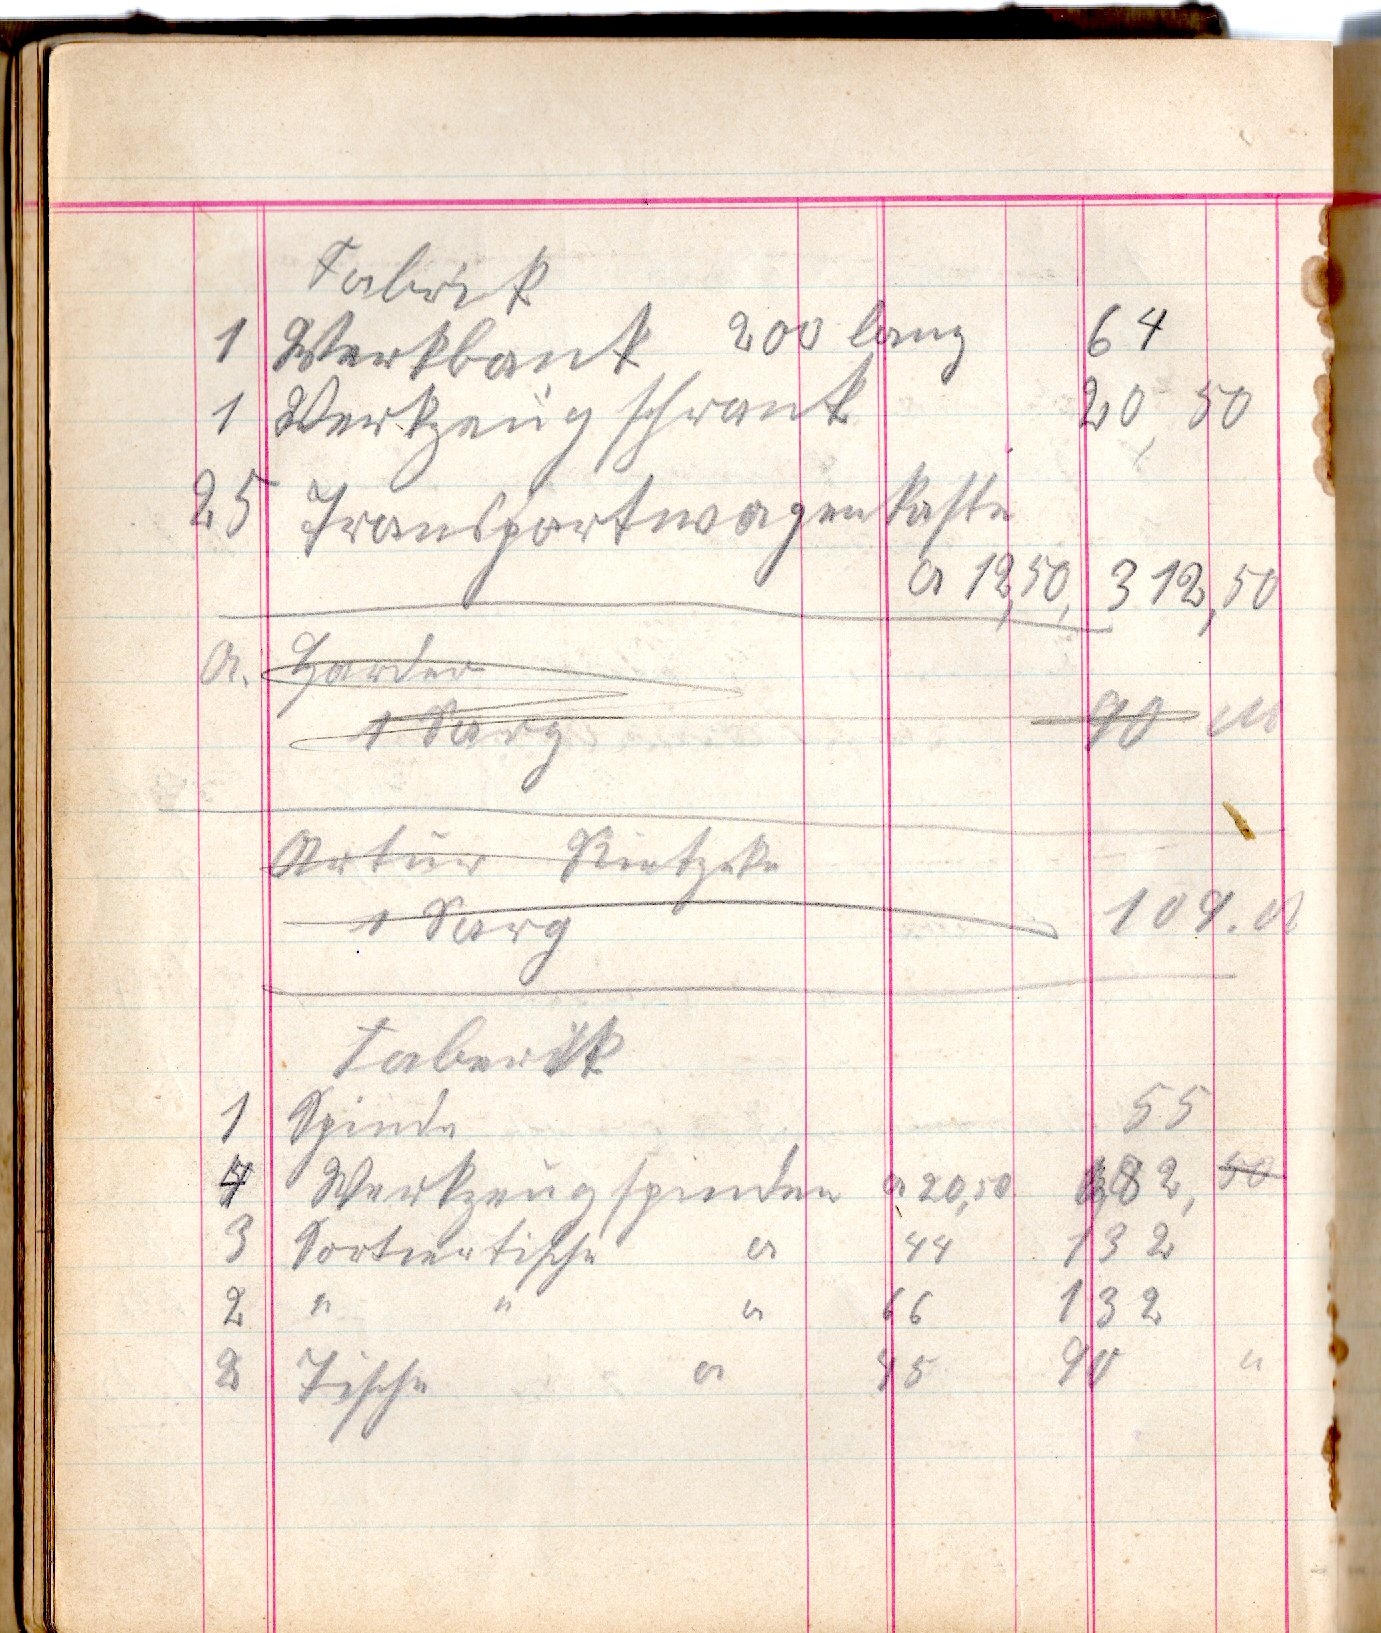 Fabrik
1 Werkbank 200 lang 64
1 Werkzeug schrank 20,50
25 Transportwagenkaste
a 12,50, 312,50
A. Harder
1 Sarg 90 M
Artur
1 Sarg 107. M
Faberik
1 Spinde 55
4 Werkzeugspinden a 20,50 82, 50
3 Sortiertische a 44 132
2 " " a 66 132
2 Tische a 45 90 "